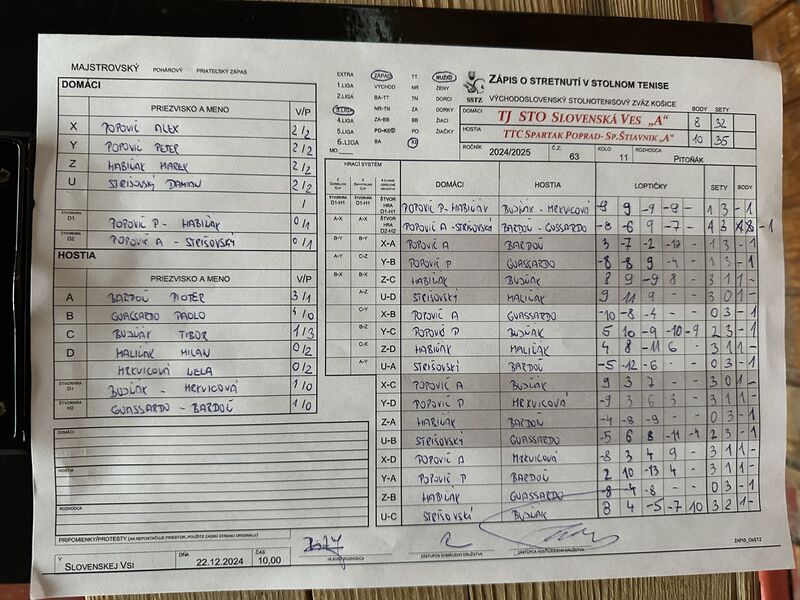 MAJSTROVSKÝ POHÁROVÝ PRIATEĽSKÝ ZÁPAS
DOMÁCI
PRIEZVISKO A MENO V/P
X POPOVIČ ALEX 2/2
Y POPOVIČ PETER 2/2
Z HABIŇÁK MAREK 2/2
U STRIŠOVSKÝ DAMIAN 2/2
/
ŠTVORHRA D1 POPOVIČ P - HABIŇÁK 0/1
ŠTVORHRA D2 POPOVIČ A - STRIŠOVSKÝ 0/1
HOSTIA
PRIEZVISKO A MENO V/P
A BARDOŇ PIOTER 3/1
B GUASSARDO PAOLO 4/0
C BUJŇÁK TIBOR 1/3
D MALIŇÁK MILAN 0/2
MRKVICOVÁ LELA 0/2
ŠTVORHRA D1 BUJŇÁK - MRKVICOVÁ 1/0
ŠTVORHRA H2 GUASSARDO - BARDOŇ 1/0
DOMÁCI
HOSTIA
ROZHODCA
PRIPOMIENKY/PROTESTY (AK NEPOSTAČUJE PRIESTOR, POUŽITE ZADNÚ STRANU ORIGINÁLU)
V SLOVENSKEJ VSI
DŇA 22.12.2024
ČAS 10,00
EXTRA ZÁPAD TT MUŽI
1.LIGA VÝCHOD NR ŽENY
2.LIGA BA-TT TN DORCI
3.LIGA NR-TN ZA DORKY
4.LIGA ZA-BB BB ŽIACI
5.LIGA PO-KE PO ŽIAČKY
6.LIGA BA KE
MO
SSTZ
ZÁPIS O STRETNUTÍ V STOLNOM TENISE
VÝCHODOSLOVENSKÝ STOLNOTENISOVÝ ZVÄZ KOŠICE
BODY SETY
DOMÁCI TJ STO SLOVENSKÁ VES „A" 8 32
HOSTIA TTC SPARTAK POPRAD- SP.ŠTIAVNIK „A" 10 35
ROČNÍK 2024/2025 Č.Z. 63 KOLO 11 ROZHODCA PITOŇÁK
HRACÍ SYSTÉM DOMÁCI HOSTIA LOPTIČKY SETY BODY
ŠTVORHRA D1-H1 POPOVIČ P-HABIŇÁK BUJŇÁK - MRKVICOVÁ -9 9 -9 -9 - 1 3 - 1
A-X A-X ŠTVORHRA D2-H2 POPOVIČ A -STRIŠOVSKÝ BARDOŇ - GUSSARDO -8 -6 9 -7 - 1 3 - 1
B-Y B-Y X-A POPOVIČ A BARDOŇ 3 -7 -2 -10 - 1 3 - 1
A-Y C-Z Y-B POPOVIČ P GUASSARDO -8 -8 9 -4 - 1 3 - 1
B-X B-X Z-C HABIŇÁK BUJŇÁK 8 9 -9 8 - 3 1 1 -
A-Z U-D STRIŠOVSKÝ MALIŇÁK 9 11 9 - - 3 0 1 -
X-B POPOVIČ A GUASSARDO -10 -8 -4 - - 0 3 - 1
B-Z Y-C POPOVIČ P BUJŇÁK 5 10 -9 -10 -9 2 3 - 1
C-X Z-D HABIŇÁK MALIŇÁK 4 8 -11 6 3 1 1 -
A-Y U-A STRIŠOVSKÝ BARDOŇ -5 -12 -6 0 3 - 1
X-C POPOVIČ A BUJŇÁK 9 3 7 - - 3 0 1 -
Y-D POPOVIČ P MRKVICOVÁ -9 3 6 3 - 3 1 1 -
Z-A HABIŇÁK BARDOŇ -4 -8 -9 - - 0 3 - 1
U-B STRIŠOVSKÝ GUASSARDO -5 6 8 -11 -4 2 3 - 1
X-D POPOVIČ A MRKVICOVÁ -8 3 4 9 - 3 1 1 -
Y-A POPOVIČ P BARDOŇ 2 10 -13 4 - 3 1 1 -
Z-B HABIŇÁK GUASSARDO -8 -4 -8 - - 0 3 - 1
U-C STRIŠOVSKÝ BUJŇÁK 8 4 -5 -7 10 3 2 1 -
HLAVNÝ ROZHODCA
ZÁSTUPCA DOMÁCEHO DRUŽSTVA
ZÁSTUPCA HOSŤUJÚCEHO DRUŽSTVA